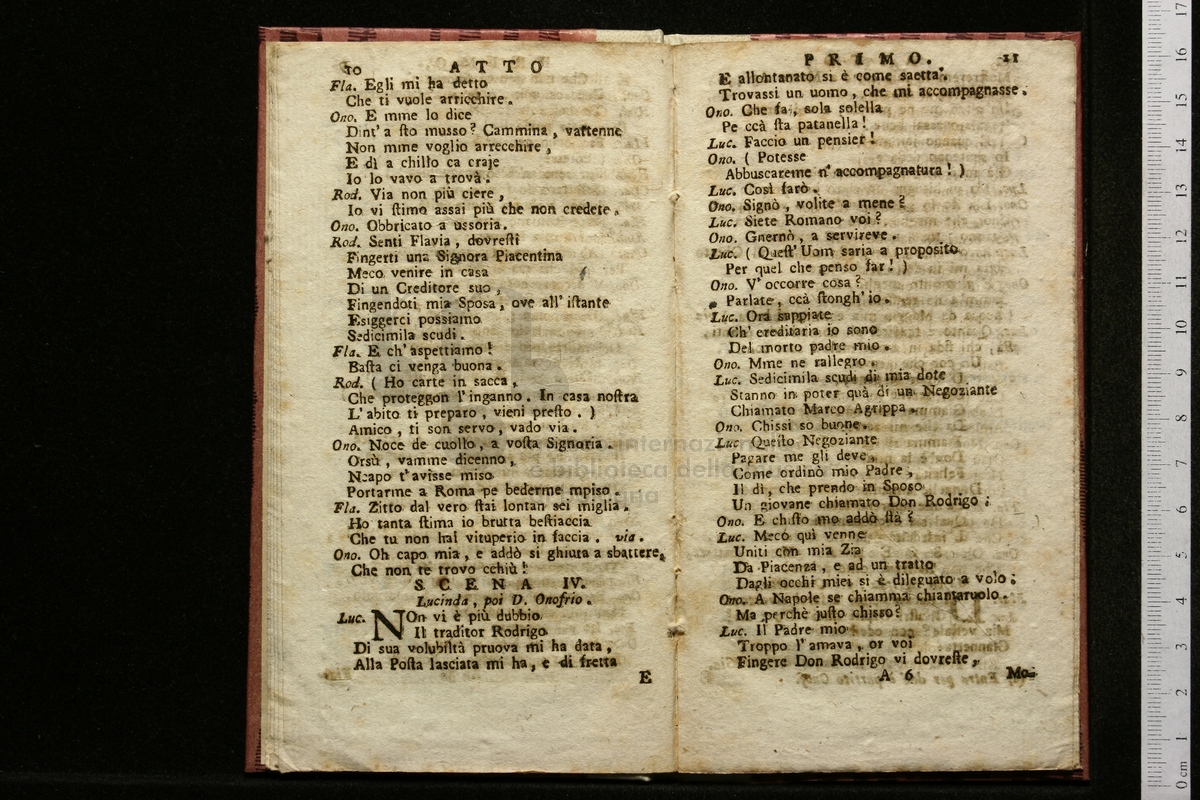 10 ATTO
Fla. Egli mi ha detto
Che ti vuole arricchire.
Ono. E mme lo dice
Dint' a ſto musso? Cammina, vattenne
Non mme voglio arrecchire,
E dì a chillo ca craje
Io lo vavo a trovà.
Rod. Via non più ciere,
Io vi ſtimo assai più che non credete.
Ono. Obbricato a ussoria.
Rod. Senti Flavia, dovreſti
Fingerti una Signora Piacentina
Meco venire in casa
Di un Creditore suo,
Fingendoti mia Sposa, ove all' iſtante
Esiggerci possiamo
Sedicimila scudi.
Fla. E ch' aspettiamo!
Baſta ci venga buona.
Rod. ( Ho carte in sacca,
Che proteggon l' inganno. In casa noſtra
L' abito ti preparo, vieni preſto. )
Amico, ti son servo, vado via.
Ono. Noce de cuollo, a voſta Signoria.
Orsù, vamme dicenno,
Ncapo t' avisse miso
Portarme a Roma pe bederme mpiso.
Fla. Zitto dal vero ſtai lontan sei miglia.
Ho tanta ſtima io brutta beſtiaccia
Che tu non hai vituperio in faccia. via.
Ono. Oh capo mia, e addò si ghiuta a sbattere,
Che non te trovo cchiù!
SCENA IV.
Lucinda, poi D. Onofrio.
Luc. NOn vi è più dubbio
Il traditor Rodrigo
Di sua volubiltà pruova mi ha data,
Alla Poſta lasciata mi ha, e di fretta
E
PRIMO. 11
E allontanato si è come saetta.
Trovassi un uomo, che mi accompagnasse.
Ono. Che fa, sola solella
Pe ccà ſta patanella!
Luc. Faccio un pensier!
Ono. ( Potesse
Abbuscareme n' accompagnatura! )
Luc. Così farò.
Ono. Signò, volite a mene?
Luc. Siete Romano voi?
Ono. Gnernò, a servireve.
Luc. ( Queſt' Uom saria a proposito
Per quel che penso far! )
Ono. V' occorre cosa?
Parlate, ccà ſtongh' io.
Luc. Ora sappiate
Ch' ereditaria io sono
Del morto padre mio.
Ono. Mme ne rallegro.
Luc. Sedicimila scudi di mia dote
Stanno in poter quà di un Negoziante
Chiamato Marco Agrippa.
Ono. Chissi so buone.
Luc. Queſto Negoziante
Pagare me gli deve,
Come ordinò mio Padre,
Il dì, che prendo in Sposo
Un giovane chiamato Don Rodrigo;
Ono. E chiſto mo addò ſtà?
Luc. Meco quì venne
Uniti con mia Zia
Da Piacenza, e ad un tratto
Dagli occhi miei si è dileguato a volo;
Ono. A Napole se chiamma chiantaruolo.
Ma perchè juſto chisso?
Luc. Il Padre mio
Troppo l' amava, or voi
Fingere Don Rodrigo vi dovreſte,
A 6 Mo-